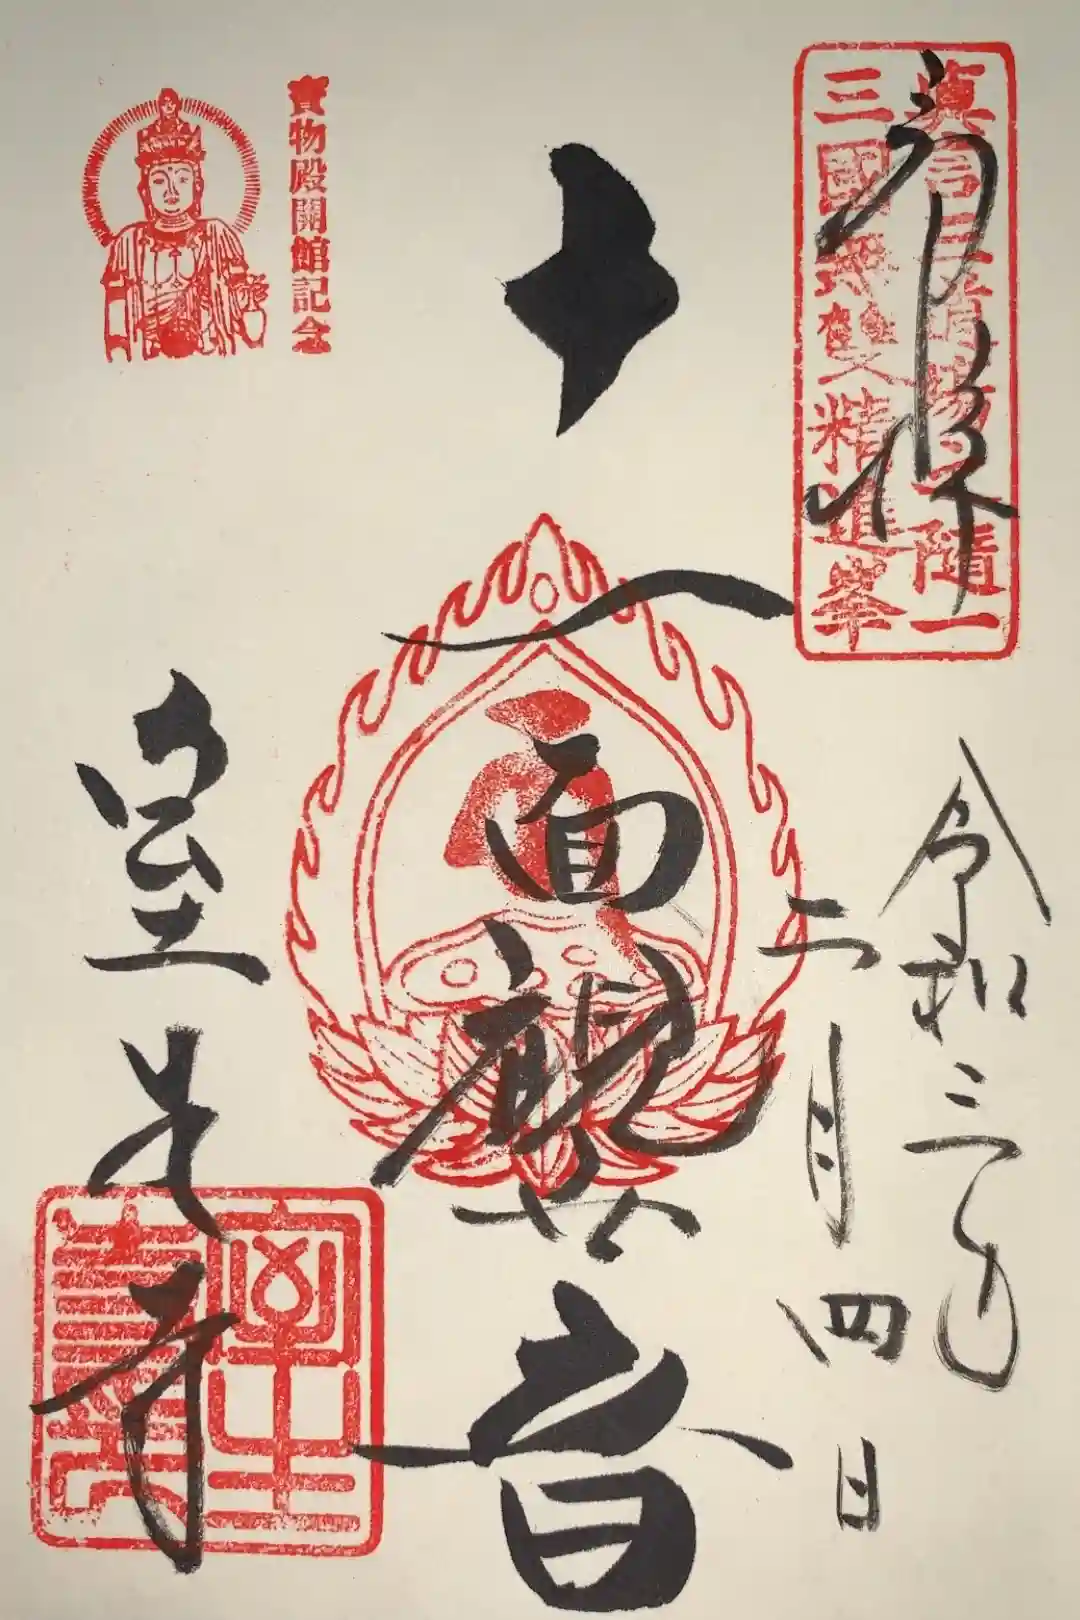 奉拝
眞言三密場之隨一
三國無雙精進峯
令和三年
二月四日
十一面觀音
寶物殿開館記念
室生寺